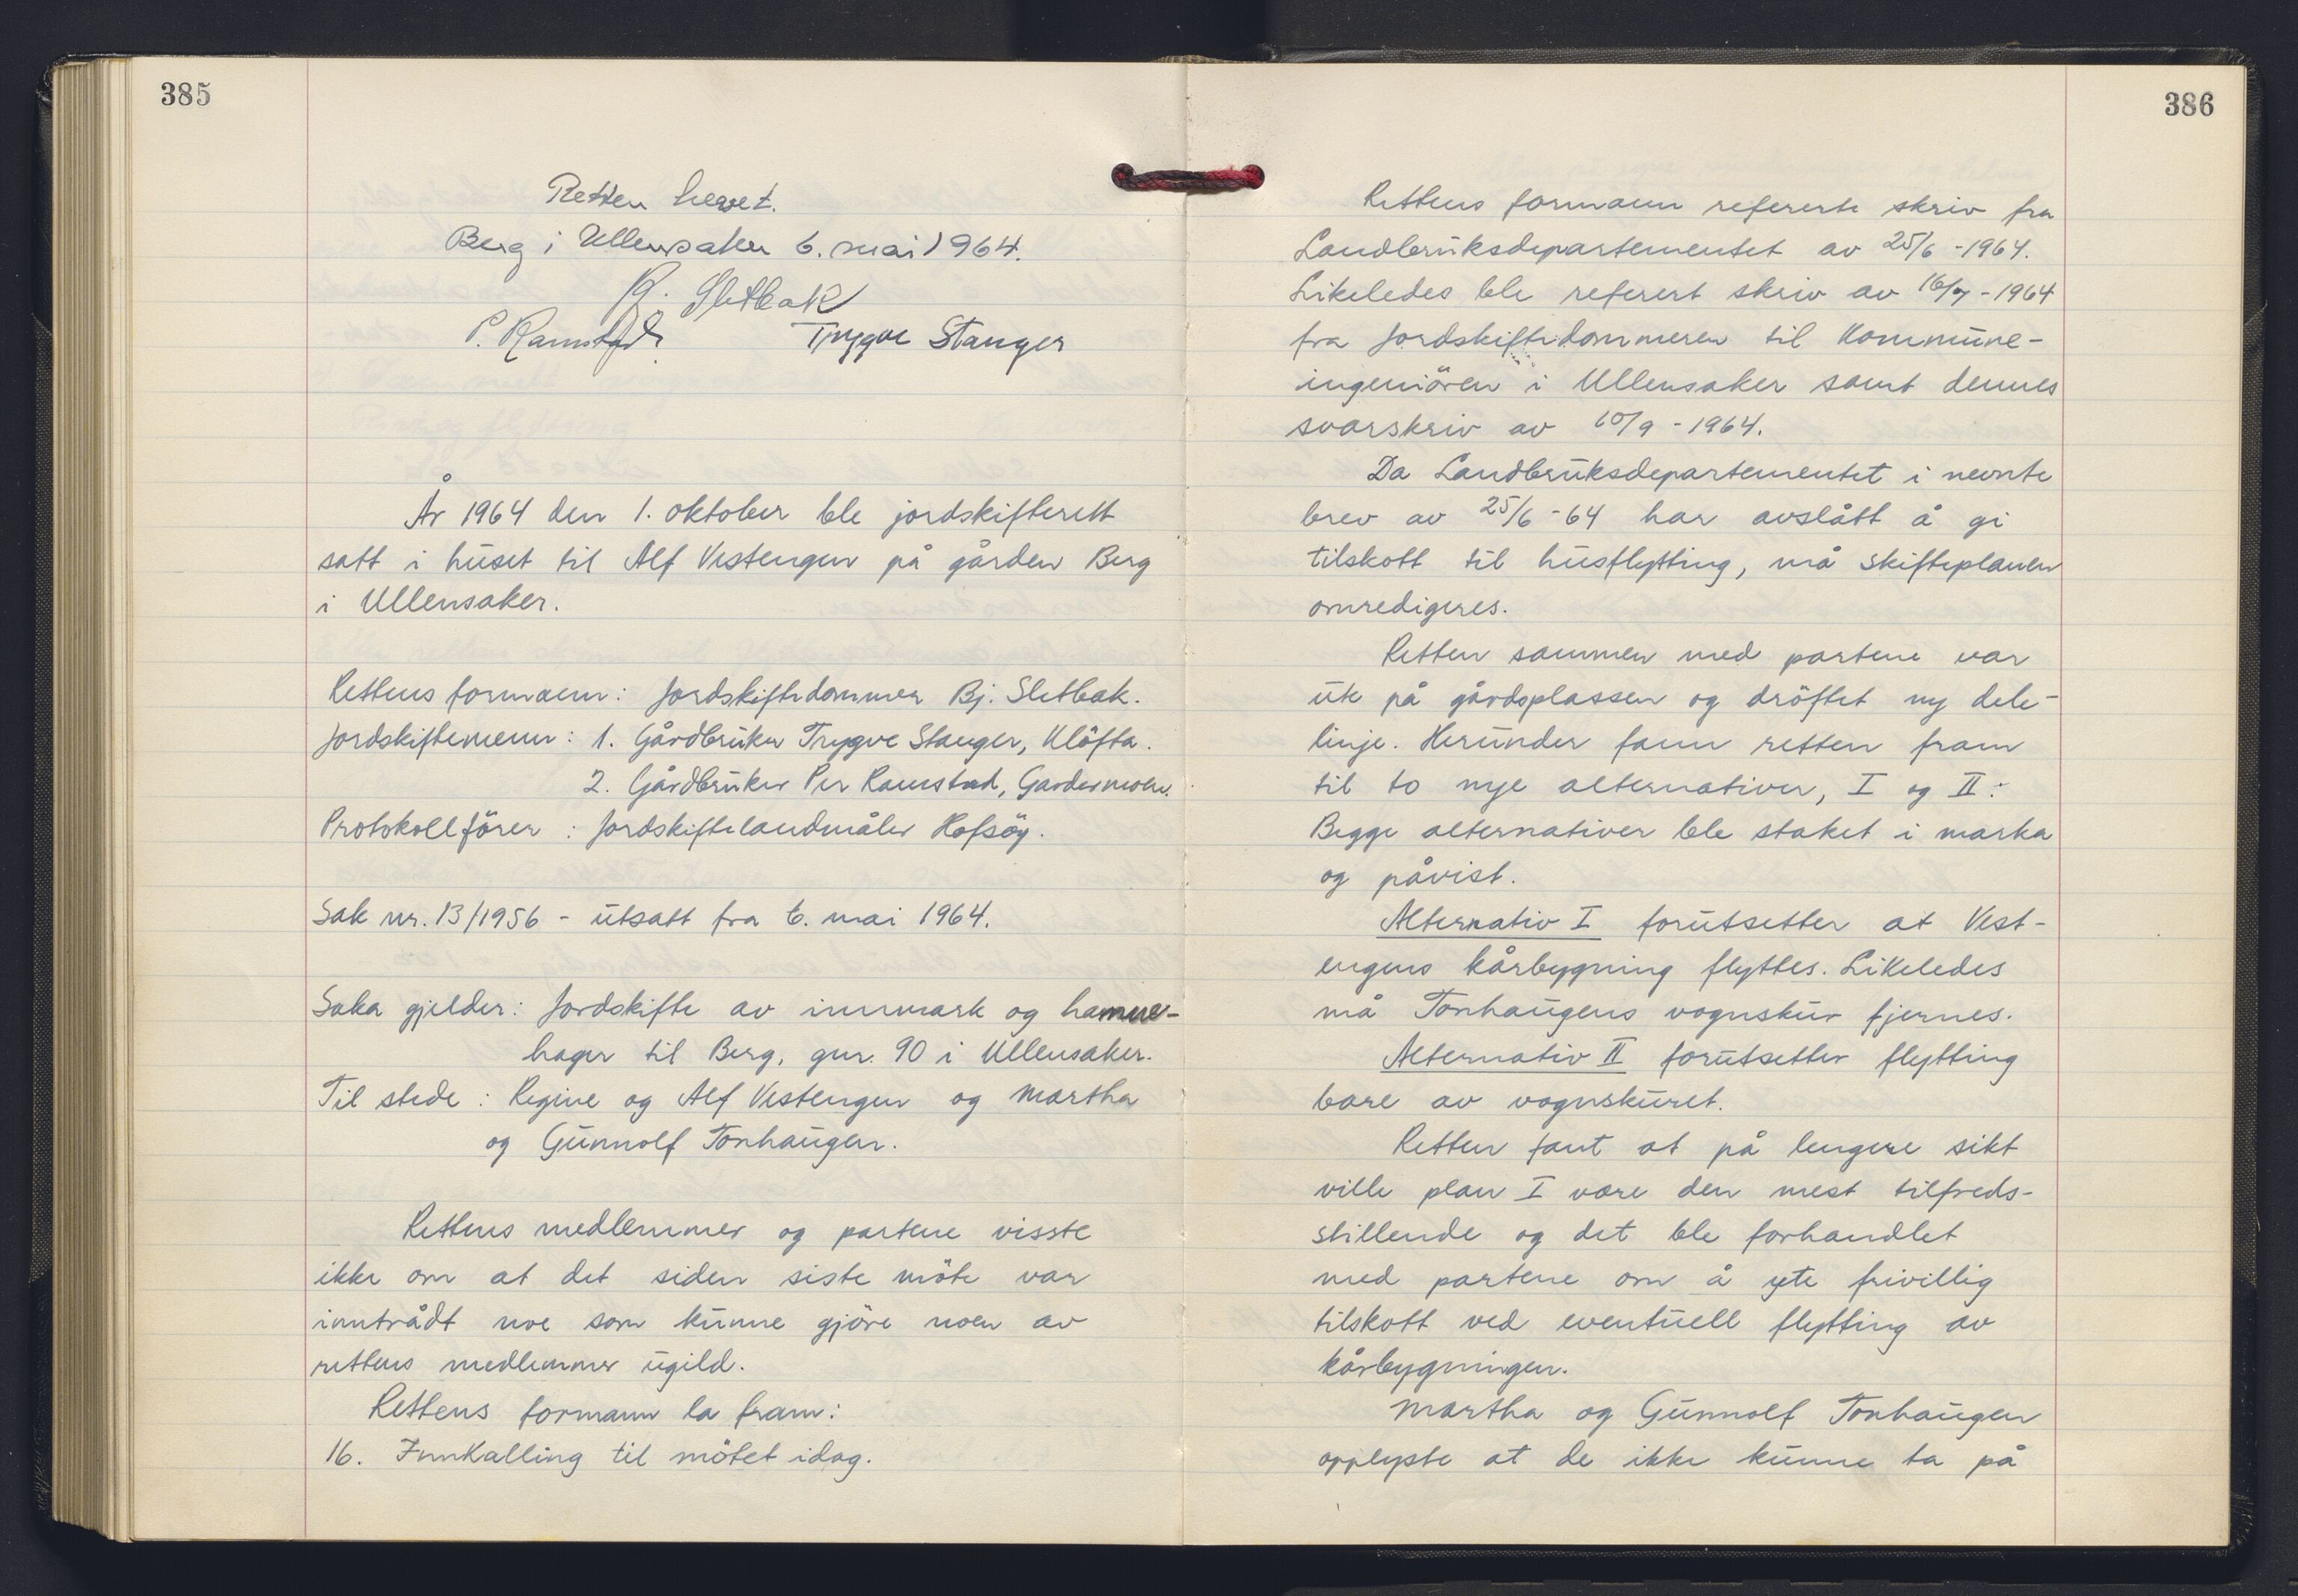 385
Retten hevet.
Berg i Ullensaker 6. mai 1964.
Bj. Sletbak
P. Ramstad Trygve Stanger
År 1964 den 1. oktober ble jordskifterett
satt i huset til Alf Vestengen på gården Berg
i Ullensaker.
Rettens formann: Jordskiftedommer Bj. Sletbak.
Jordskiftemenn: 1. Gårdbruker Trygve Stanger, Klöfta.
2. Gårdbruker Per Ramstad, Gardermoen.
Protokollförer : Jordskiftelandmåler Hofsöy.
Sak nr. 13/1956 - utsatt fra 6. mai 1964.
Saka gjelder: Jordskifte av innmark og hamne-
hager til Berg, gnr. 90 i Ullensaker.
Til stede : Regine og Alf Vestengen og Martha
og Gunnolf Tonhaugen.
Rettens medlemmer og partene visste
ikke om at det siden siste möte var
inntrådt noe som kunne gjöre noen av
rettens medlemmer ugild.
Rettens formann la fram:
16. Innkalling til mötet idag.
386
Rettens formann refererte skriv fra
Landbruksdepartementet av 25/6 - 1964.
Likeledes ble referert skriv av 16/7 - 1964
fra Jordskiftedommeren til Kommune-
ingeniören i Ullensaker samt dennes
svarskriv av 10/9 - 1964.
Da Landbruksdepartementet i nevnte
brev av 25/6 - 64 har avslått å gi
tilskott til husflytting, må skifteplanen
omredigeres.
Retten sammen med partene var
ute på gårdsplassen og dröftet ny dele-
linje. Herunder fann retten fram
til to nye alternativer, I og II:
Begge alternativer ble staket i marka
og påvist.
Alternativ I forutsetter at Vest-
engens kårbygning flyttes. Likeledes
må Tonhaugens vognskur fjernes.
Alternativ II forutsetter flytting
bare av vognskuret.
Retten fant at på lengere sikt
ville plan I være den mest tilfreds-
stillende og det ble forhandlet
med partene om å yte frivillig
tilskott ved eventuell flytting av
kårbygningen.
Martha og Gunnolf Tonhaugen
opplyste at de ikke kunne ta på